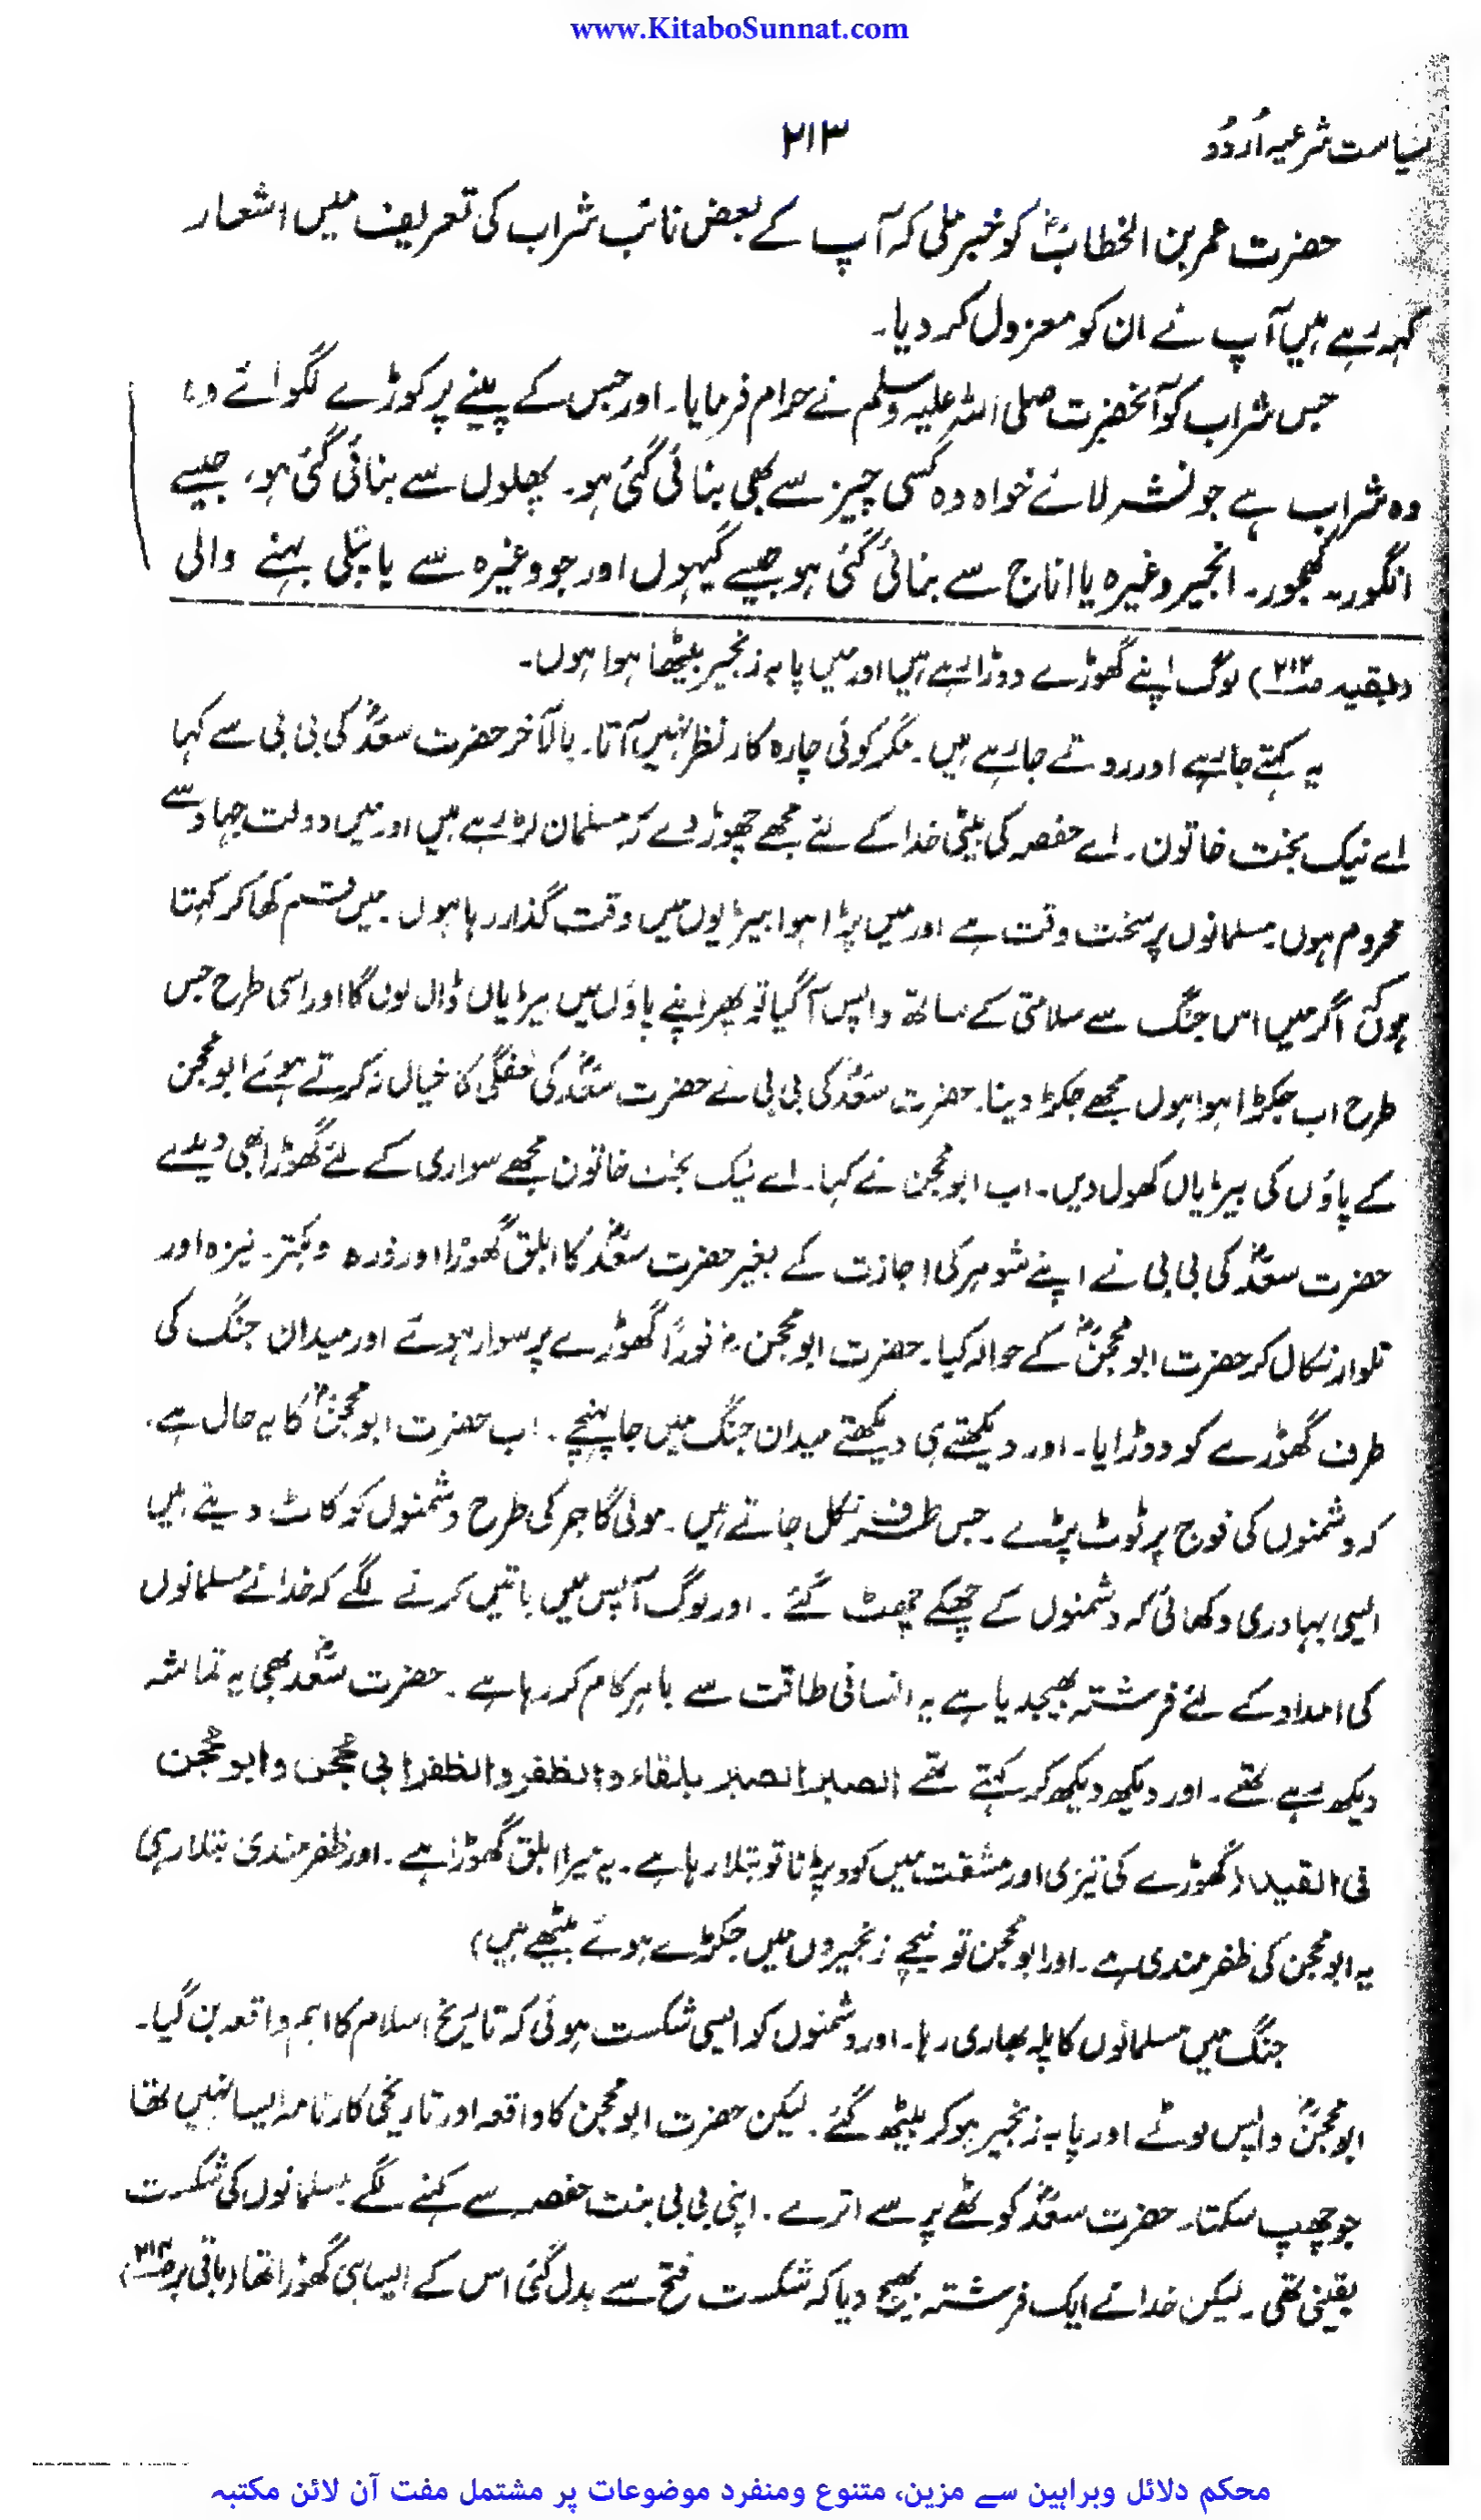 www.KitaboSunnat.com
سیاست شرعیہ اُردُو
۲۱۳
حضرت عمر بن الخطابؓ کو خبر ملی کہ آپ کے بعض نائب شراب کی تعریف میں اشعار
کہہ رہے ہیں آپ نے ان کو معزول کر دیا۔
جس شراب کو آنحضرت صلی اللہ علیہ وسلم نے حرام فرمایا۔ اور جس کے پینے پر کوڑے لگوائے وہ
وہ شراب ہے جو نشہ لائے خواہ وہ کسی چیز سے بھی بنائی گئی ہو۔ پھلوں سے بنائی گئی ہو، جیسے
انگور۔ کھجور۔ انجیر وغیرہ یا اناج سے بنائی گئی ہو جیسے گیہوں اور جو وغیرہ سے یا پتلی بہنے والی
(بقیہ صـ۲۱۲) لوگ اپنے گھوڑے دوڑا رہے ہیں اور میں پا بہ زنجیر بیٹھا ہوا ہوں۔
یہ کہتے جا رہے اور روتے جا رہے ہیں۔ مگر کوئی چارہ کار نظر نہیں آتا۔ بالآخر حضرت سعدؓ کی بی بی سے کہا
اے نیک بخت خاتون۔ اے حفصہ کی بیٹی خدا کے لئے مجھے چھوڑ دے کہ مسلمان لڑ رہے ہیں اور میں دولت جہاد سے
محروم ہوں۔ مسلمانوں پر سخت وقت ہے اور میں پڑا ہوا بیڑیوں میں وقت گذار رہا ہوں۔ میں قسم کھا کر کہتا
ہوں کہ اگر میں اس جنگ سے سلامتی کے ساتھ واپس آگیا تو پھر اپنے پاؤں میں بیڑیاں ڈال لوں گا اور اسی طرح جس
طرح اب جکڑا ہوا ہوں مجھے جکڑ دینا۔ حضرت سعدؓ کی بی بی نے حضرت سعدؓ کی خفگی کا خیال نہ کرتے ہوئے ابو محجن
کے پاؤں کی بیڑیاں کھول دیں۔ اب ابو محجن نے کہا۔ اے نیک بخت خاتون مجھے سواری کے لئے گھوڑا بھی دیدے
حضرت سعدؓ کی بی بی نے اپنے شوہر کی اجازت کے بغیر حضرت سعدؓ کا ابلق گھوڑا اور زرہ و بکتر۔ نیزہ اور
تلوار نکال کر حضرت ابو محجنؓ کے حوالہ کیا۔ حضرت ابو محجنؓ فوراً گھوڑے پر سوار ہوئے اور میدان جنگ کی
طرف گھوڑے کو دوڑایا۔ اور دیکھتے ہی دیکھتے میدان جنگ میں جا پہنچے۔ اب حضرت ابو محجنؓ کا یہ حال ہے۔
کہ دشمنوں کی فوج پر ٹوٹ پڑے۔ جس طرف نکل جاتے ہیں۔ مولی گاجر کی طرح دشمنوں کو کاٹ دیتے ہیں
ایسی بہادری دکھائی کہ دشمنوں کے چھکے چھٹ گئے۔ اور لوگ آپس میں باتیں کرنے لگے کہ خدائے مسلمانوں
کی امداد کے لئے فرشتہ بھیجدیا ہے یہ انسانی طاقت سے باہر کام کر رہا ہے۔ حضرت سعدؓ بھی یہ تماشہ
دیکھ رہے تھے۔ اور دیکھ دیکھ کر کہتے تھے الصبر الصبر بلقاء والظفر والظفر ابی محجن وابو محجن
فی القید (گھوڑے کی تیزی اور مشقت میں کود پڑنا تو بتلا رہا ہے۔ یہ میرا ابلق گھوڑا ہے۔ اور ظفر مندی بتلا رہی
یہ ابو محجن کی ظفر مندی ہے۔ اور ابو محجن تو نیچے زنجیروں میں جکڑے ہوئے بیٹھے ہیں)
جنگ میں مسلمانوں کا پلہ بھاری رہا۔ اور دشمنوں کو ایسی شکست ہوئی کہ تاریخ اسلام کا اہم واقعہ بن گیا۔
ابو محجنؓ واپس لوٹے اور پا بہ زنجیر ہو کر بیٹھ گئے۔ لیکن حضرت ابو محجن کا واقعہ اور تاریخی کارنامہ ایسا نہیں تھا
جو چھپ سکتا۔ حضرت سعدؓ کوٹھے پر سے اترے۔ اپنی بی بی بنت حفصہ سے کہنے لگے مسلمانوں کی شکست
یقینی تھی۔ لیکن خدا نے ایک فرشتہ بھیج دیا کہ شکست فتح سے بدل گئی اس کے ایسا ہی گھوڑا تھا (باقی بر صـ۲۱۴)
محکم دلائل وبراہین سے مزین، متنوع ومنفرد موضوعات پر مشتمل مفت آن لائن مکتبہ